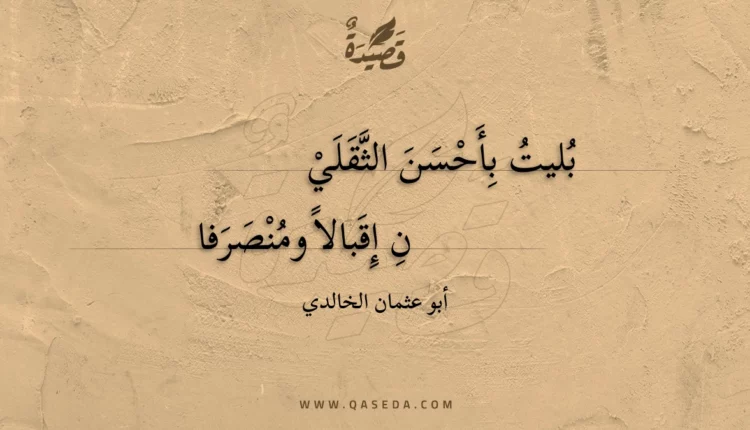 قَصِيْدَةٌ
بُليتُ بِأَحْسَنَ الثَّقَلَيْ
نِ إِقَبالاً ومُنْصَرَفا
أبو عثمان الخالدي
WWW.QASEDA.COM